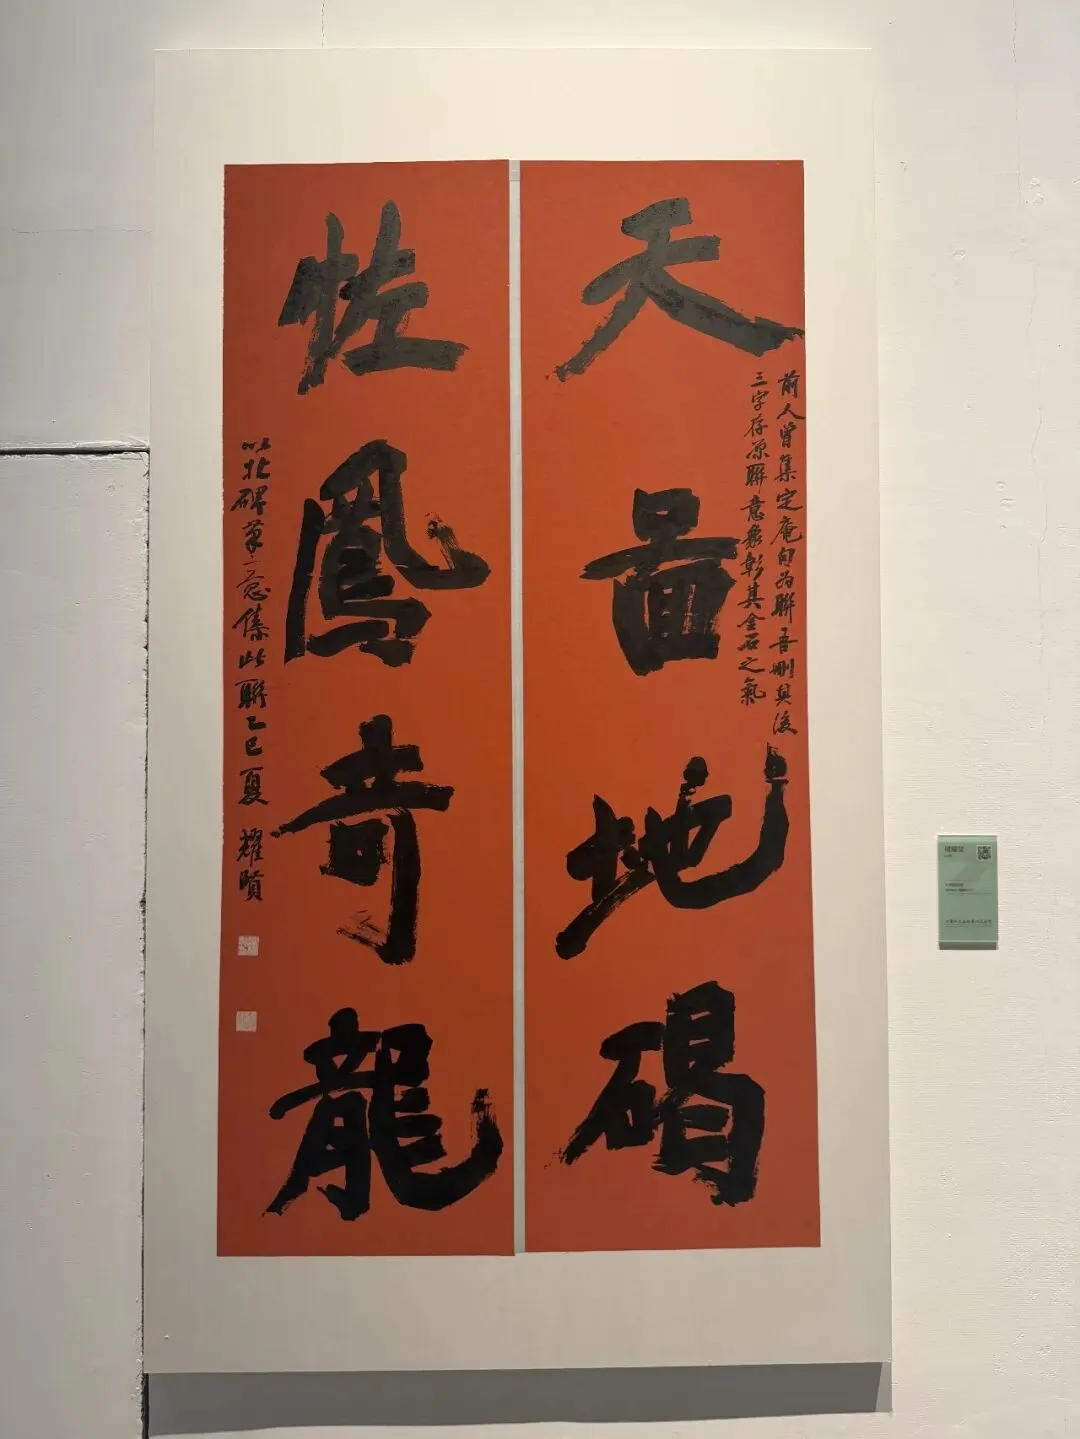 天啚地碣
前人曾集定庵句为聯吾刪其後
三字存原聯意象彰其金石之氣
恠鳳奇龍
以北碑筆意集此聯乙巳夏 耀賢